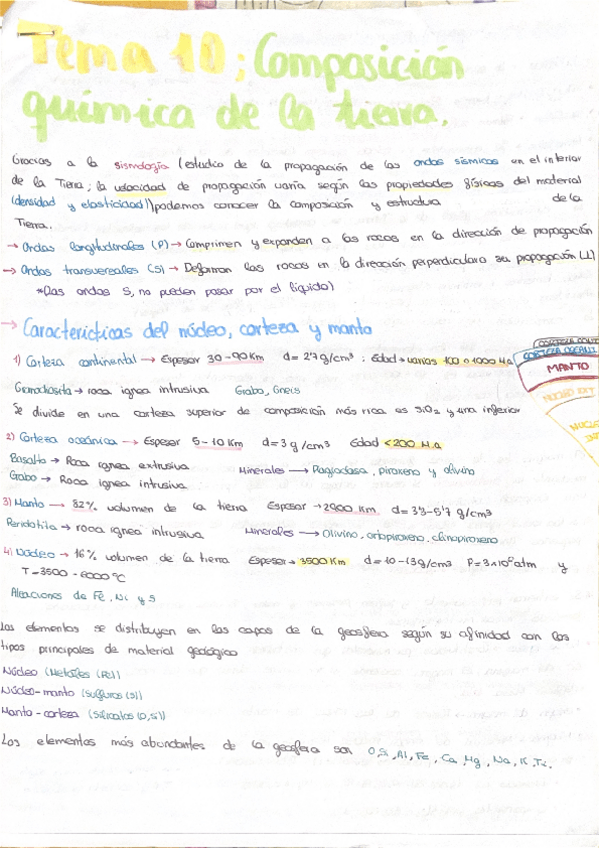 Tema 10: Composición
química de la tierra.
Gracias a la sismología (estudio de la propagación de las ondas sísmicas en el interior
de la Tierra; la velocidad de propagación varía según las propiedades físicas del material
(densidad y elasticidad)) podemos conocer la composición y estructura de la
Tierra.
→ Ondas longitudinales (P) → Comprimen y expanden a las rocas en la dirección de propagación
→ Ondas transversales (S) → Deforman las rocas en la dirección perpendicular a su propagación (⊥)
*(las ondas S, no pueden pasar por el líquido)
→ Características del núcleo, corteza y manto
CORTEZA OCEÁNI
MANTO
1) Corteza continental → Espesor 30-90 Km d= 2'7 g/cm³ ; Edad → varios 100 o 1000 Ma
Granodiosita → roca ignea intrusiva Grabo, Gneis
Se divide en una corteza superior de composición más rica as SiO₂ y una inferior
2) Corteza oceánica → Espesor 5-10 Km d= 3 g/cm³ Edad < 200 M.a
Basalto → Roca ignea extrusiva Minerales → Plagioclasa, piroxeno y olivino
Gabo → Roca ignea intrusiva
3) Manto → 82% volumen de la tierra Espesor → 2900 Km d= 3'3-5'7 g/cm³
Peridotita → roca ignea intrusiva Minerales → Olivino, ortopiroxeno, clinopiroxeno
4) Núcleo → 16% volumen de la tierra Espesor → 3500 Km d= 10-13 g/cm3 P= 3×10⁶ atm y
T=3500 - 6000 ºC
Aleaciones de Fe, Ni y S
Los elementos se distribuyen en las capas de la geosfera según su afinidad con los
tipos principales de material geológico
Núcleo (Metales (Fe))
Núcleo-manto (Sulfuros (S))
Manto-corteza (Silicatos (O,Si))
Los elementos más abundantes de la geosfera son O, Si, Al, Fe, Ca, Mg, Na, K, Ti.